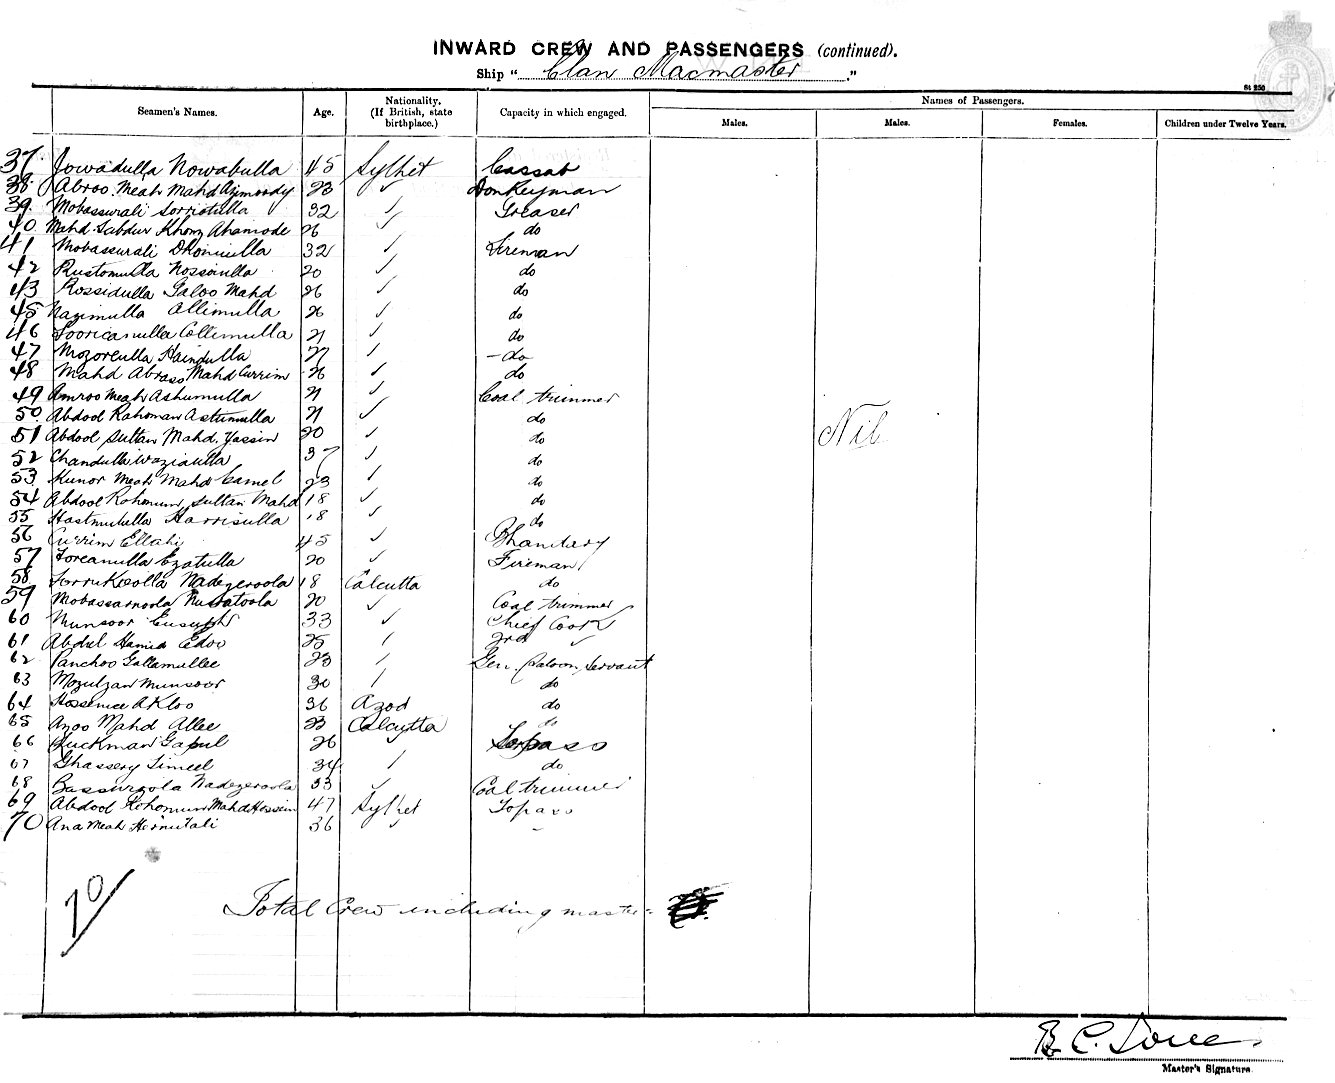 INWARD CREW AND PASSENGERS (continued).
Ship "Clan Macmaster."
St 250
Seamen's Names. Age. Nationality. (If British, state birthplace.) Capacity in which engaged. Names of Passengers.
Males. Males. Females. Children under Twelve Years.
37. Jowadulla Nowabulla 45 Sylhet Cassab
38. Abroo Meah Mahd Azimoody 23 ✓ Donkeyman
39. Mobassurali 32 ✓ Greaser
40 Mahd Sabdur Khong Ahamode 26 ✓ do
41 Mobassurali 32 ✓ Fireman
42 Rustomulla 20 ✓ do
43 Rossidulla Galoo Mahd 26 ✓ do
45 Nazimulla Allimulla 26 ✓ do
46 Collimulla 21 ✓ do
47 Mozoreulla Haindulla 27 ✓ - do
48 Mahd Abraso Mahd Currim 26 ✓ do
49 Amroo Meah Ashumulla 21 ✓ Coal trimmer
50. Abdool Rahoman Astumulla 21 ✓ do
51 Abdool Sultan Mahd. Yassin 20 ✓ do Nil
52 Chandulla Waziaulla 37 ✓ do
53 Kunor Meah Mahd Camel 23 ✓ do
54 Abdool Rohomun Sultan Mahd 18 ✓ do
55 Hastmutulla Harrisulla 18 ✓ do
56 Currim Ellahi 45 ✓ Bhandary
57 Toreanulla Ezatulla 20 ✓ Fireman
58 Nadezeroola 18 Calcutta do
59 Mobassarnoola 20 ✓ Coal trimmer
60 Munsoor Eusuph 33 ✓ Chief Cook
61 Abdul Hamid Edoo 25 ✓ 2nd ✓
62 Panchoo Gollamullee 23 ✓ Gen. Saloon Servant
63 Mozulzan Munsoor 30 ✓ do
64 Hosseniee Akloo 36 Azod do
65 Azoo Mahd Allee 23 Calcutta do
66 Buckman Gapul 26 ✓ Topass
67 Ghassery Limeel 34 ✓ do
68 Bassurzola Nadezeroola 33 ✓ Coal trimmer
69 Abdool Rohomun Mahd Hossein 47 Sylhet Topass
70 Ana Meah 36 ✓ -
70
Total Crew including master =
B C.
Master's Signature.